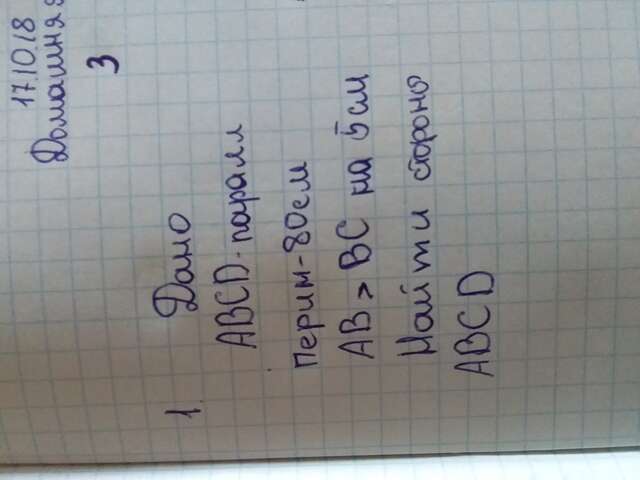 17.10.18
Домашняя
3
1. Дано
ABCD-паралл
перим-80см
AB > BC на 5см
Найти стороны
ABCD